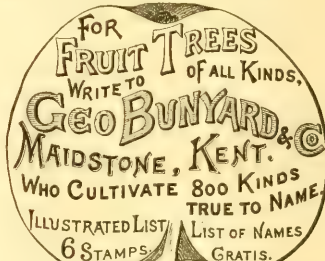 FOR
FRUIT TREES
OF ALL KINDS,
WRITE TO
GEO BUNYARD & CO
MAIDSTONE, KENT.
WHO CULTIVATE 800 KINDS
TRUE TO NAME.
ILLUSTRATED LIST
6 STAMPS.
LIST OF NAMES
GRATIS.